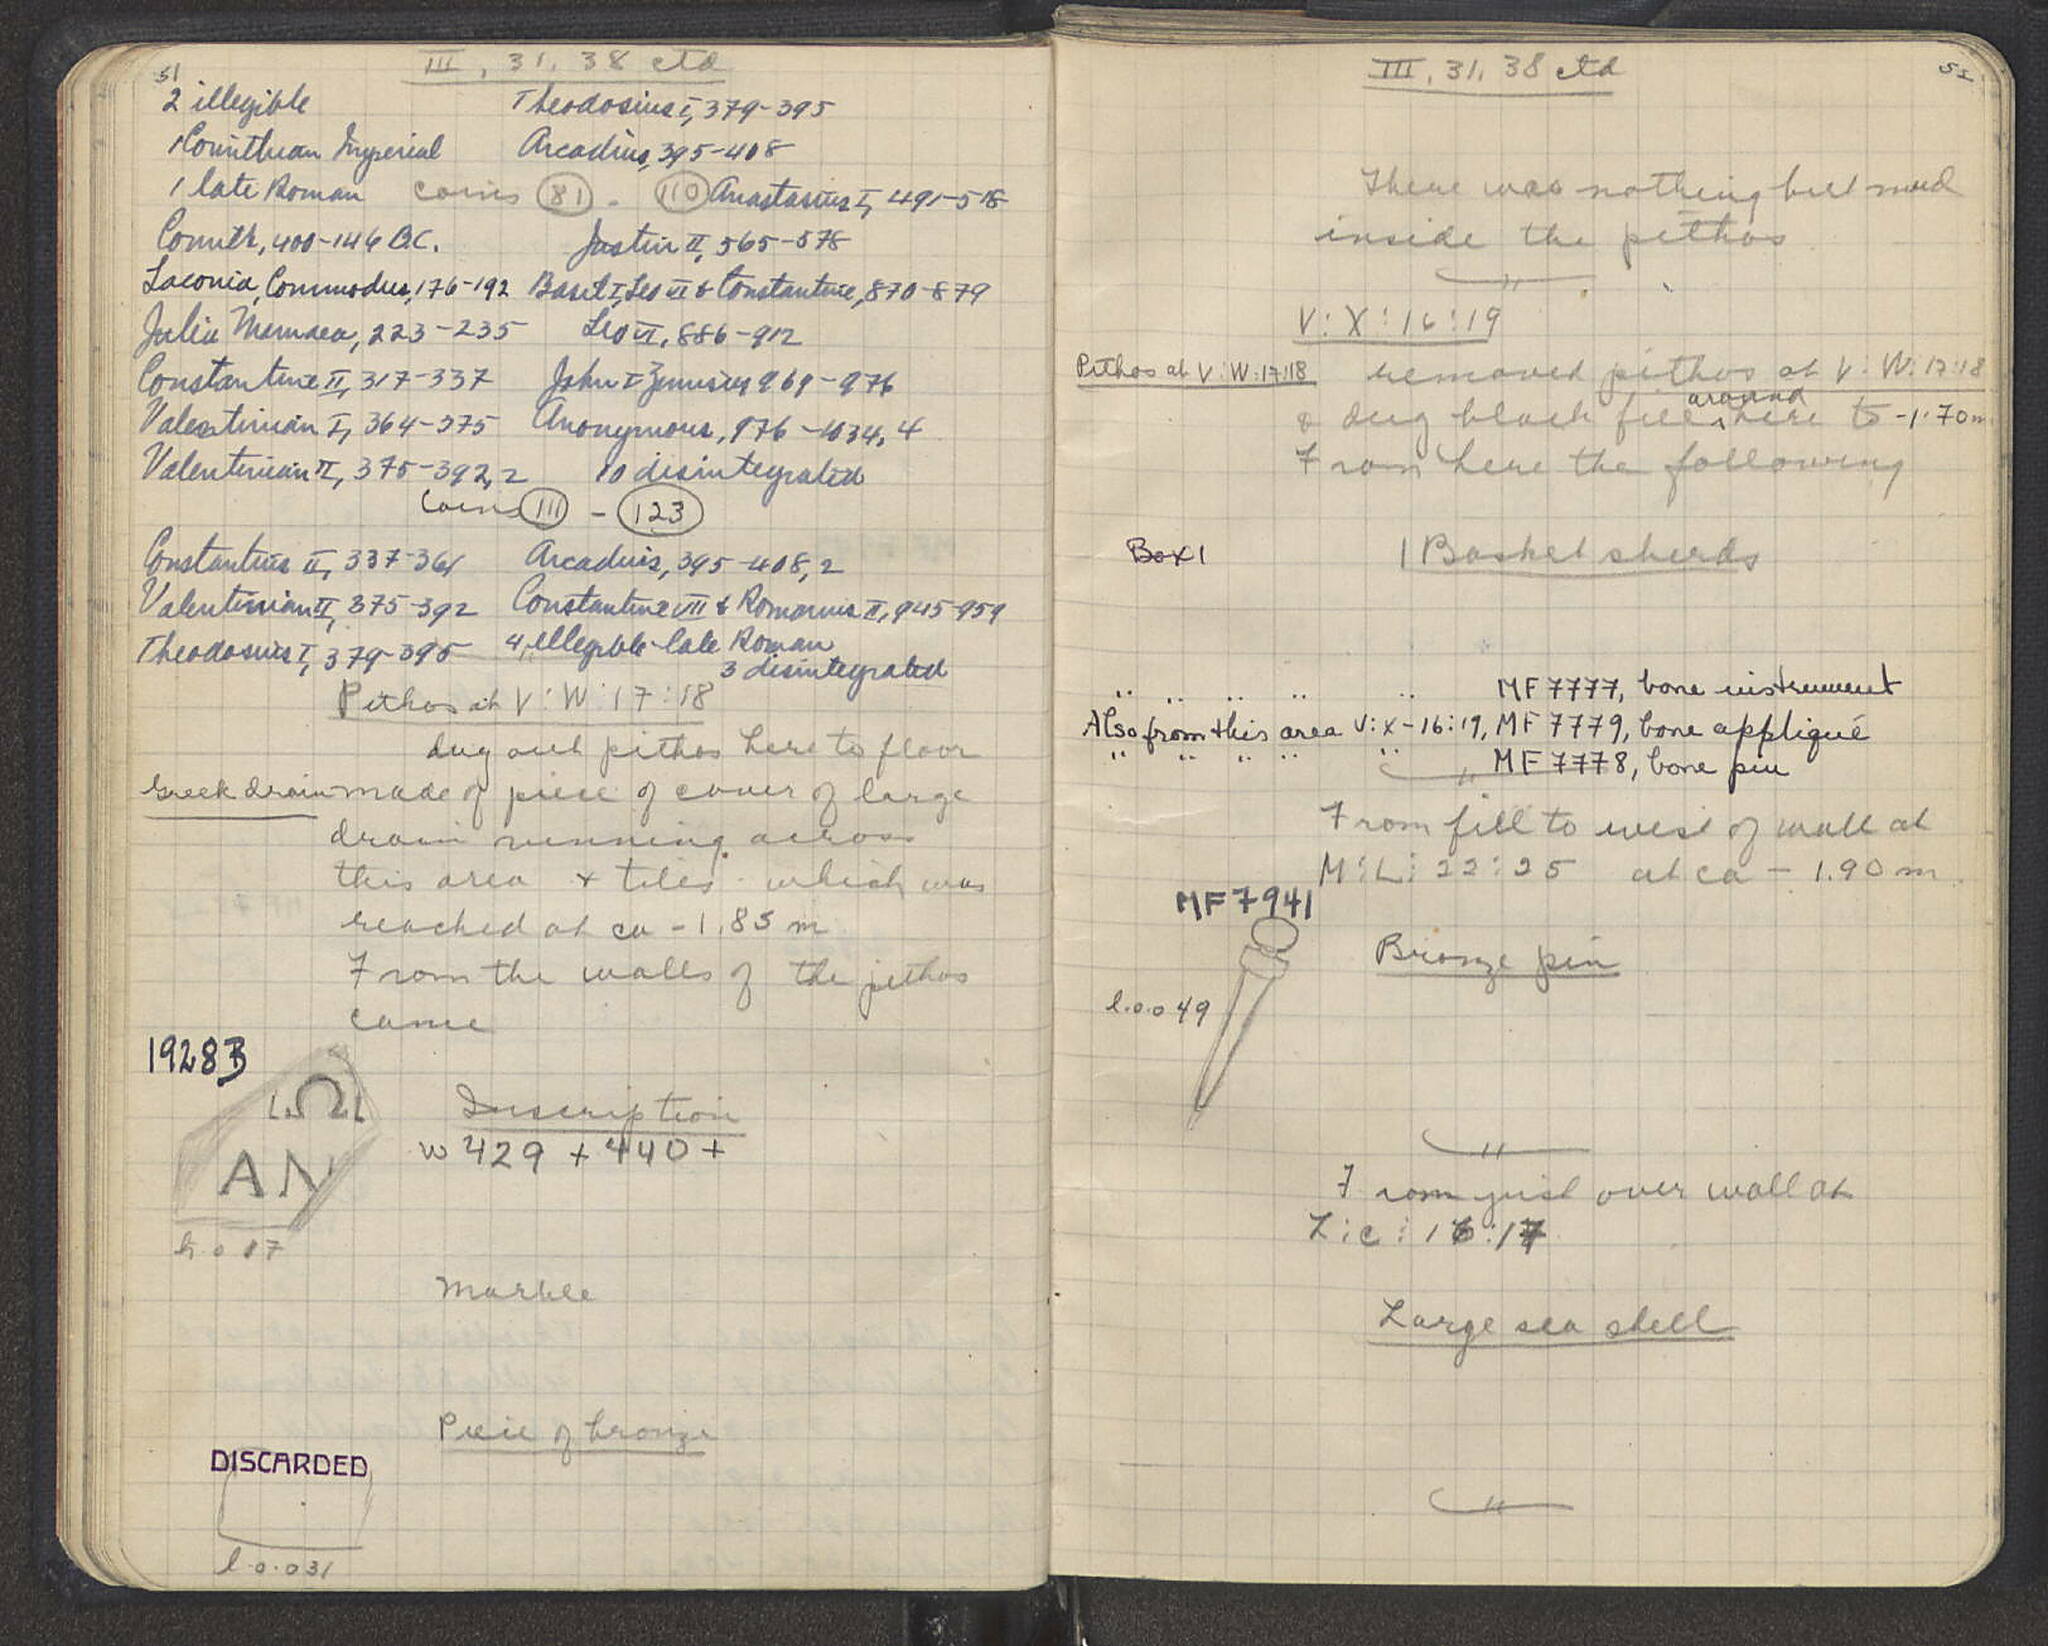 51
III, 31, 38 ctd
2 illegible Theodosius I, 379-395
1 Corinthian Imperial Arcadius, 395-408
1 late Roman coins 81 - 110 Anastasius I, 491-518
Corinth, 400-146 B.C. Justin II, 565-578
Laconia, Commodus, 176-192 Basil I, Leo VI & Constantine, 870-879
Julia Mamaea, 223-235 Leo VI, 886-912
Constantine II, 317-337 John I Zimisces 969-976
Valentinian I, 364-375 Anonymous, 976-1034, 4
Valentinian II, 375-392, 2 10 disintegrated
Coins 111 - 123
Constantius II, 337-361 Arcadius, 395-408, 2
Valentinian II, 375-392 Constantine VII & Romanus II, 945-959
Theodosius I, 379-395 4 illegible late Roman
3 disintegrated
Pithos at V:W:17:18
dug out pithos here to floor
Greek drain made of piece of cover of large
drain running across
this area + tiles which was
reached at ca -1.85 m
From the walls of the pithos
came
1928B
LΩL
AN
h 0 17
Inscription
w 429 + 440 +
Marble
Piece of bronze
DISCARDED
l.0.031
III, 31, 38 ctd
51
There was nothing but mud
inside the pithos
V:X:16:19
Pithos at V:W:17:18 removed pithos at V:W:17:18
& dug black fill around here to -1.70 m.
From here the following
Box 1 1 Basket sherds
" " " " " MF 7777, bone instrument
Also from this area V:X-16:19, MF 7779, bone appliqué
" " " " " MF 7778, bone pin
From fill to west of wall at
M:L:22:25 at ca - 1.90 m.
MF 7941
Bronze pin
l.0.049
From just over wall at
Z:C:16:17
Large sea shell